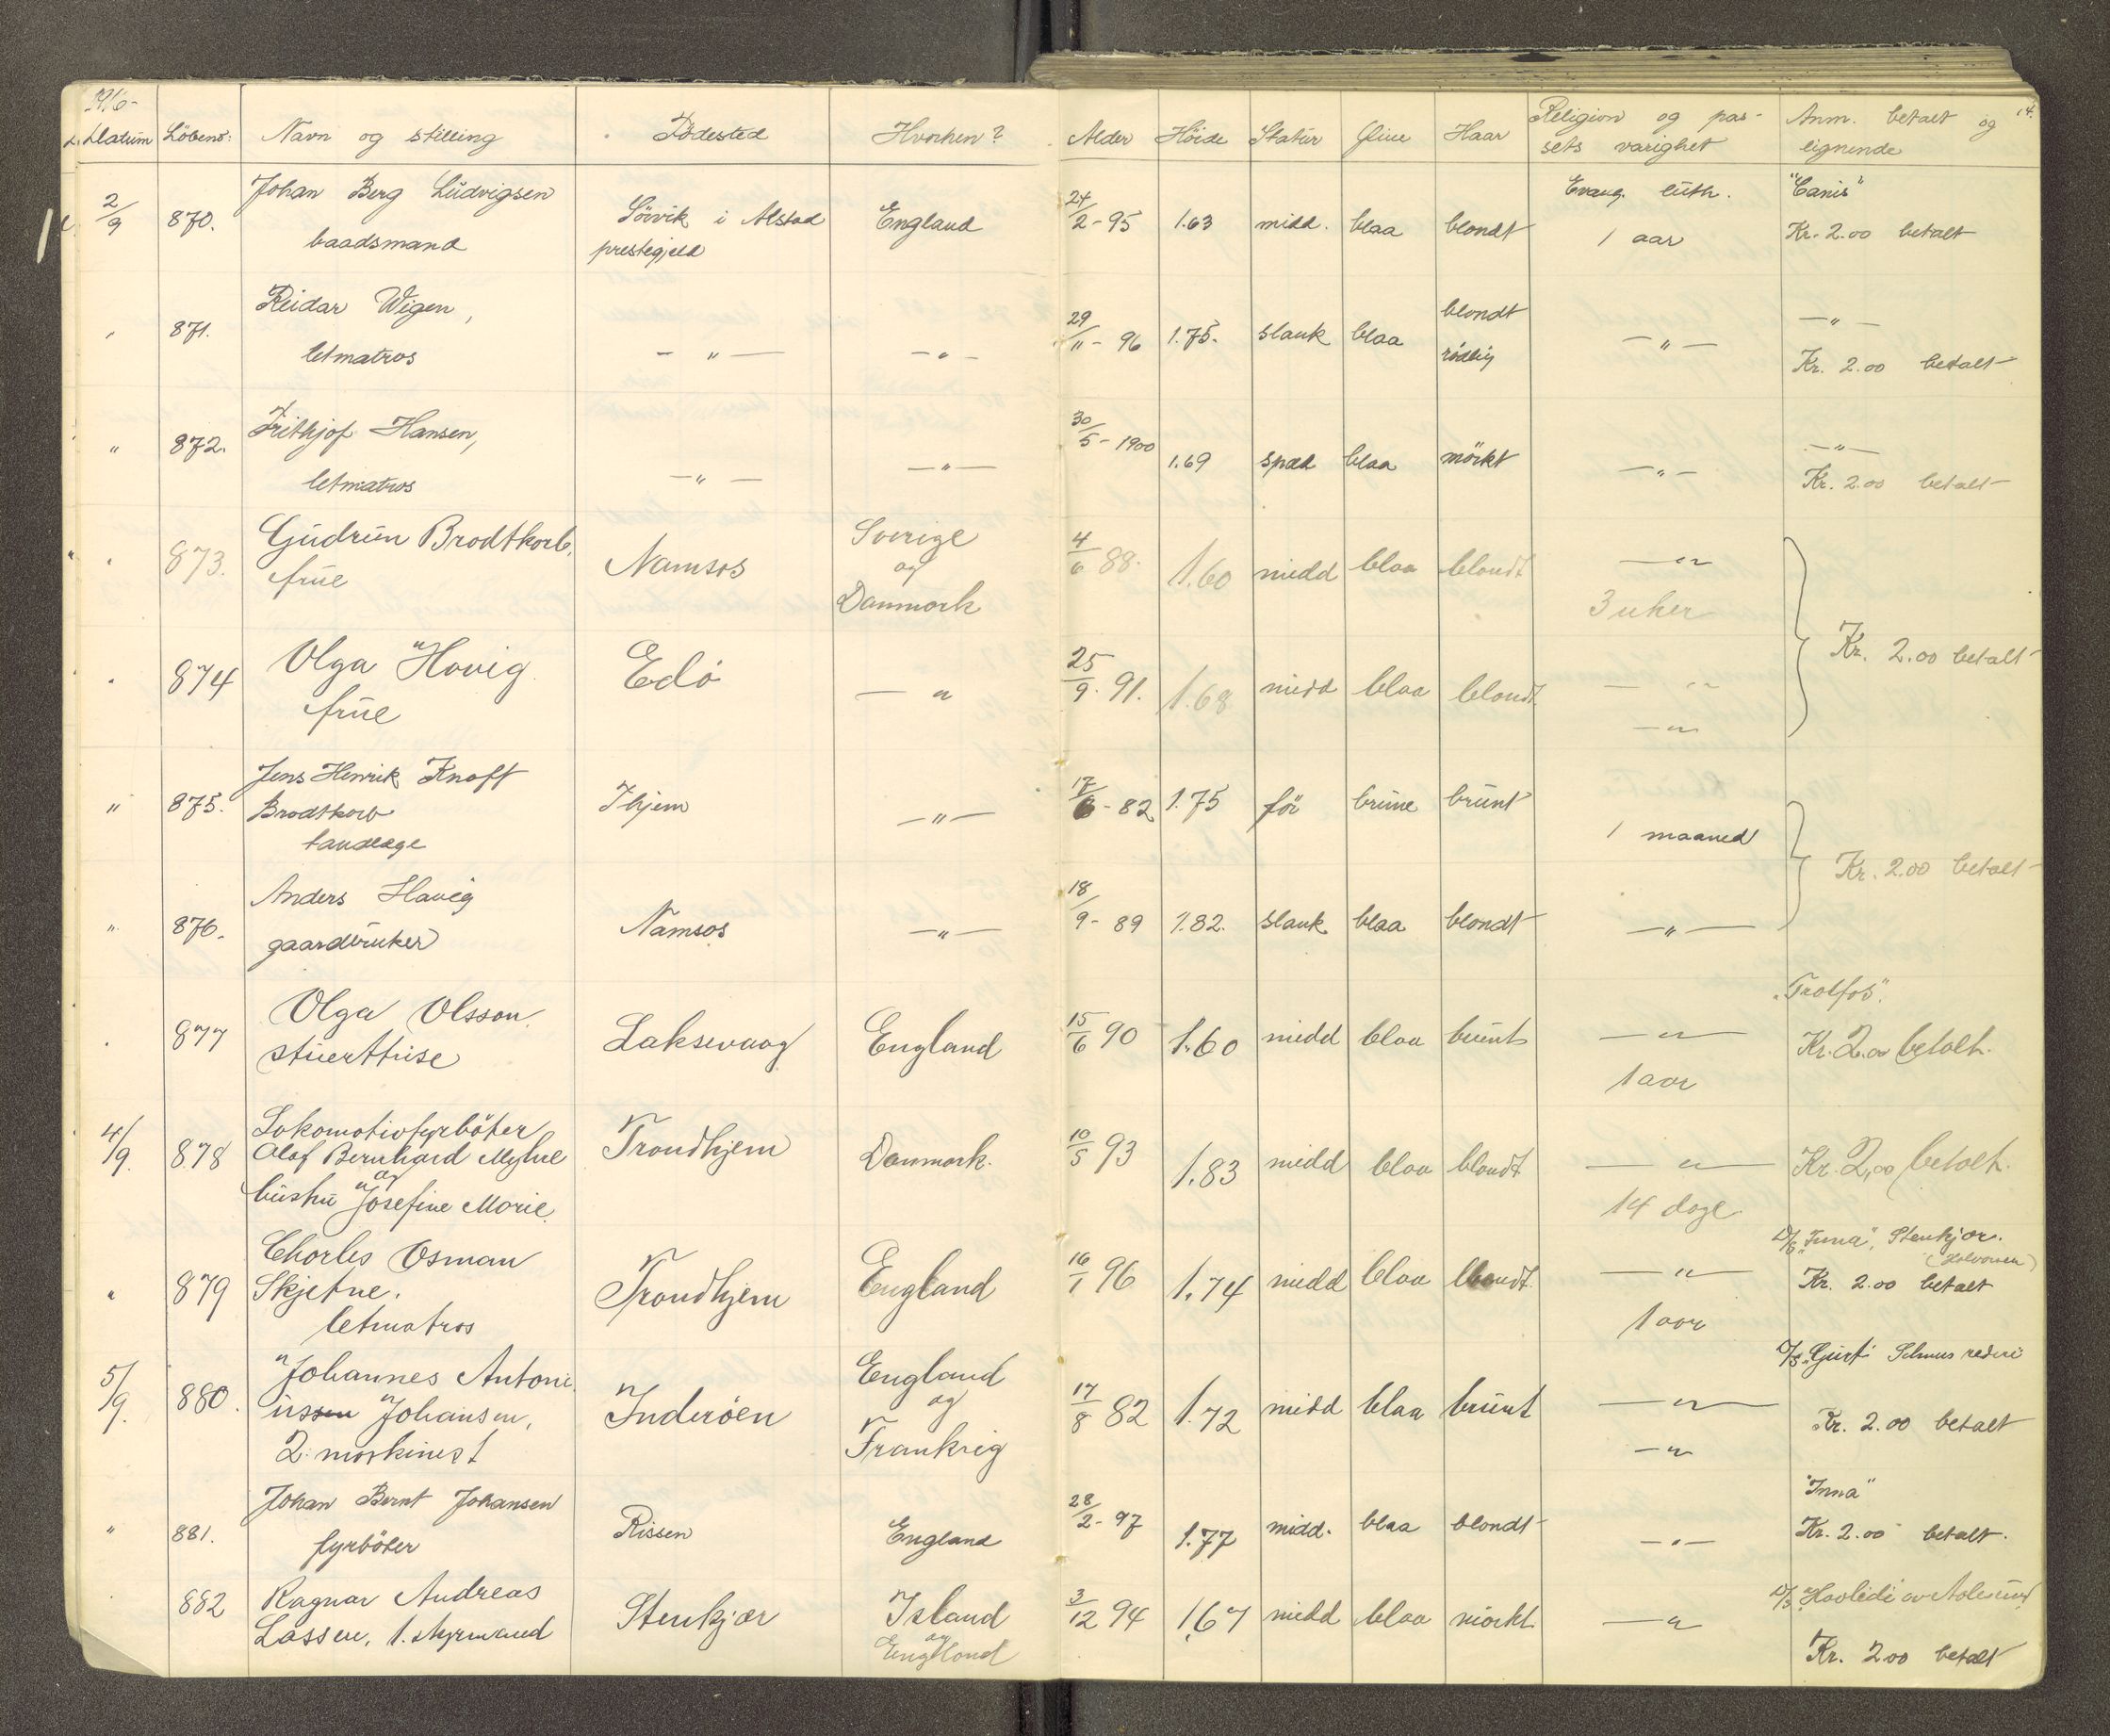 1916-
Datum Löbenr: Navn og stilling Födested Hvorhen? Alder Höide Statur Öine Haar Religion og pas- Anm. betalt og 14.
sets varighet lignende
2/9 870. Johan Berg Ludvigsen Sörvik i Alstad England 24/2-95 1.63 midd. blaa blondt Evang. luth. "Canis"
baadsmand prestegjeld 1 aar Kr. 2.00 betalt
" 871. Reidar Wigen, — " — — " — 29/11-96 1.75. slank blaa blondt — " — — " —
letmatros rödlig Kr. 2.00 betalt
" 872. Frithjof Hansen, — " — — " — 30/5-1900 1.69 spæd blaa mörkt — " — — " —
letmatros Kr. 2.00 betalt
" 873. Gudrun Brodtkorb, Namsos Sverige 4/6 88. 1.60 midd blaa blondt — " —
frue og 3 uker
Danmark
" 874 Olga Hovig Edö — " 25/9. 91. 1.68 midd blaa blondt. — " — Kr. 2.00 betalt
frue — " —
" 875. Jens Henrik Knoff Thjem — " — 17/6-82 1.75 för brune brunt 1 maaned
Brodtkorb
tandlæge Kr. 2.00 betalt
" 876. Anders Havig Namsos — " — 18/9-89 1.82. slank blaa blondt — " —
gaardbruker
" 877 Olga Olsson Laksevaag England 15/6 90 1.60 midd blaa brunt — " — "Trolfos".
stuerttrise 1 aar Kr. 2.00 betalt.
4/9. 878 Lokomotivfyrböter Trondhjem Danmark. 10/5 93 1.83 midd blaa blondt — " — Kr. 2,00 betalt.
Olaf Bernhard Myhre 14 dage
og
hustru Josefine Marie.
" 879 Charles Osman Trondhjem England 16/1 96 1.74 midd blaa blondt. — " — D/S "Inna", Stenkjær.
Skjetne. 1 aar Kr. 2.00 betalt
letmatros
5/9. 880. Johannes Antoni Inderöen England 17/8 82 1.72 midd blaa brunt — " — D/S "Gurt" Selmus rederi
ussen Johansen, og — " — Kr. 2.00 betalt
2. maskinist Frankrig
" 881. Johan Bernt Johansen Rissen England 28/2-97 1.77 midd. blaa blondt — " — "Inna"
fyrböter Kr. 2.00 betalt.
882 Ragnar Andreas Stenkjær Island 3/12 94 1,67 midd blaa mörkt — " D/S "Havleidi av Aalesund
Lassen, 1. styrmand og
England Kr. 2.00 betalt